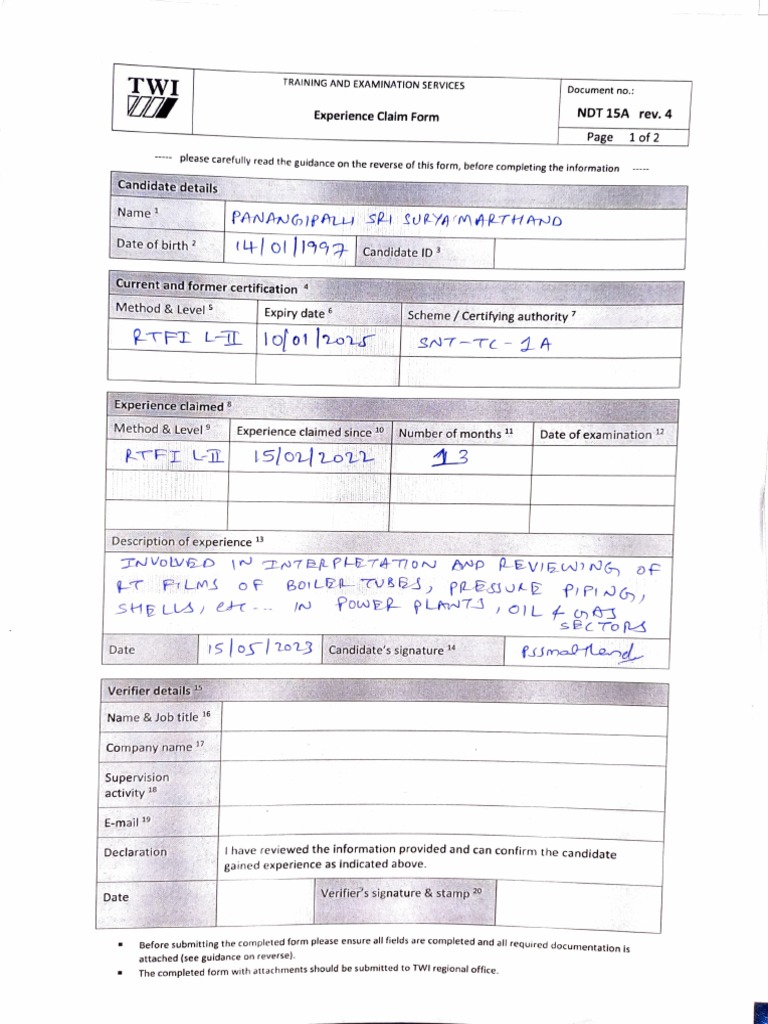 TWI
TRAINING AND EXAMINATION SERVICES
Experience Claim Form
Document no.:
NDT 15A rev. 4
Page 1 of 2
----- please carefully read the guidance on the reverse of this form, before completing the information -----
Candidate details
Name 1 PANANGIPALLI SRI SURYA MARTHAND
Date of birth 2 14/01/1997 Candidate ID 3
Current and former certification 4
Method & Level 5 Expiry date 6 Scheme / Certifying authority 7
RTFI L-II 10/01/2025 SNT-TC-1A
Experience claimed 8
Method & Level 9 Experience claimed since 10 Number of months 11 Date of examination 12
RTFI L-II 15/02/2022 13
Description of experience 13
INVOLVED IN INTERPRETATION AND REVIEWING OF
RT FILMS OF BOILER TUBES, PRESSURE PIPING,
SHELLS, etc... IN POWER PLANTS, OIL & GAS
SECTORS
Date 15/05/2023 Candidate's signature 14
Verifier details 15
Name & Job title 16
Company name 17
Supervision
activity 18
E-mail 19
Declaration I have reviewed the information provided and can confirm the candidate
gained experience as indicated above.
Date Verifier's signature & stamp 20
▪ Before submitting the completed form please ensure all fields are completed and all required documentation is
attached (see guidance on reverse).
▪ The completed form with attachments should be submitted to TWI regional office.